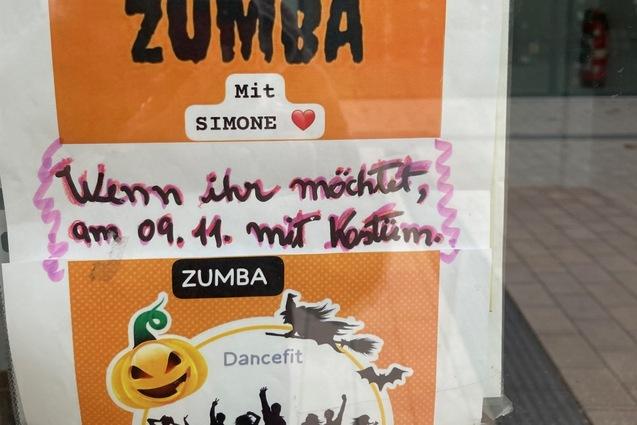 ZUMBA
Mit
SIMONE ❤️
Wenn ihr möchtet,
am 09.11. mit Kostüm.
ZUMBA
Dancefit